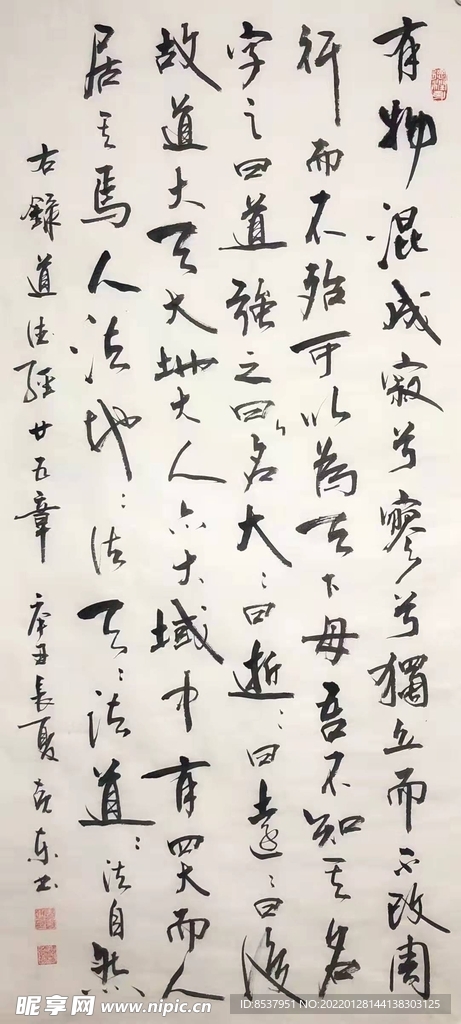 有物混成寂兮寥兮獨立而不改周
行而不殆可以為天下母吾不知其名
字之曰道強之曰名大〻曰逝〻曰遠〻曰返
故道大天大地大人亦大域中有四大而人
居其焉人法地〻法天〻法道〻法自然
右錄道德經廿五章 辛丑長夏 書
昵享网 www.nipic.cn
ID:8537951 NO:20220128144138303125